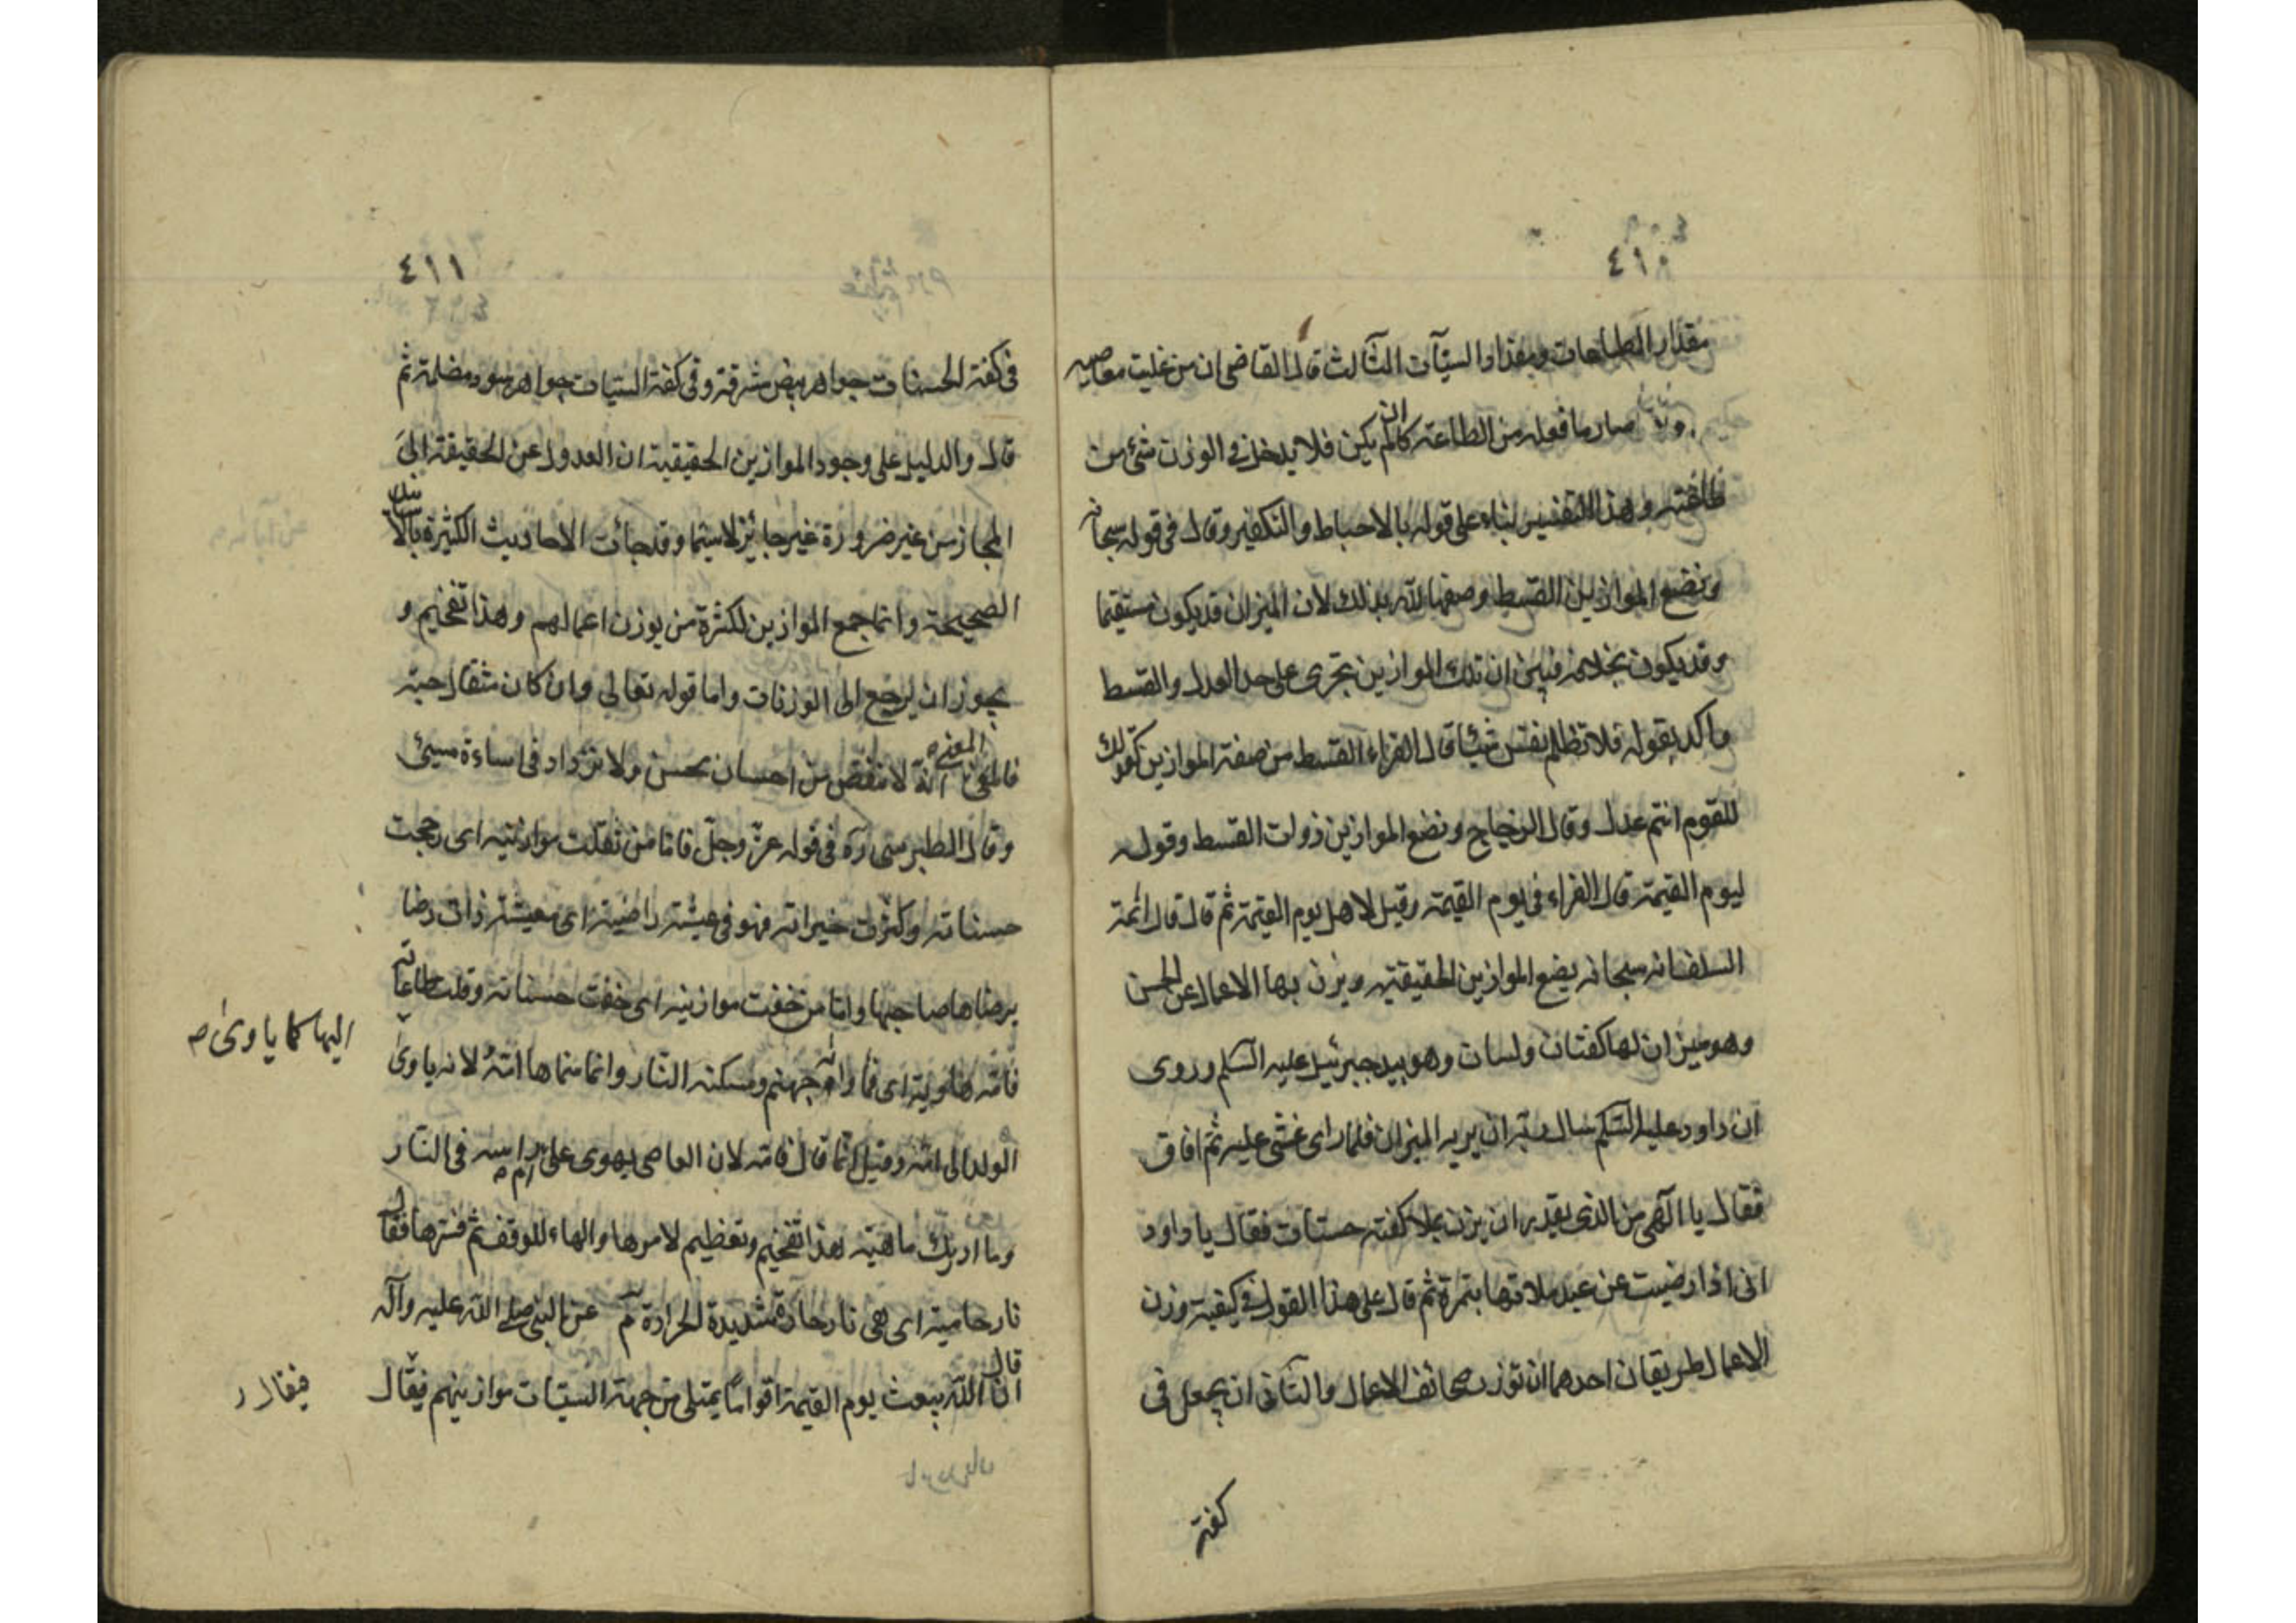 ٤١٠
مقدار الطاعات ومقدار السيّآت الثالث قال القاضى ان من غلبت معاصيه
صار ما فعله من الطاعة كان لم يكن فلا يدخل فى الوزن شئ من
طاعته وهذا التفسير بناء على قوله بالاحباط والتكفير وقال فى قوله سبحانه
ونضع الموازين القسط وصفها الله بذلك لان الميزان قد يكون مستقيما
وقد يكون بخلافه فبيّن ان تلك الموازين تجرى على حد العدل والقسط
واكد بقوله فلا تظلم نفس شيئا قال الفراء القسط من صفة الموازين كقولك
للقوم انتم عدل وقال الزجاج ونضع الموازين ذوات القسط وقوله
ليوم القيمة قال الفراء فى يوم القيمة وقيل لاهل يوم القيمة ثم قال قال ائمة
السلف انه سبحانه يضع الموازين الحقيقية ويزن بها الاعمال عن الحسن
وهو ميزان لها كفتان ولسان وهو بيد جبرئيل عليه السّلم وروى
ان داود عليه السّلم سال ربّه ان يريه الميزان فلما راى غشى عليه ثم افاق
فقال يا الٓهى من الذى يقدر ان يزن بملا كفته حسنات فقال يا داود
انى اذا رضيت عن عبد ملاتها بتمرة ثم قال على هذا القول فى كيفية وزن
الاعمال طريقان احدهما ان توزن صحائف الاعمال والثانى ان يجعل فى
كفة
٤١١
فى كفة الحسنات جواهر بيض مشرقة وفى كفة السيات جواهر سود مضلمة ثم
قال والدليل على وجود الموازين الحقيقية ان العدول عن الحقيقة الى
المجاز من غير ضرورة غير جائز لا سيّما وقد جائت الاحاديث الكثيرة بالاسانيد
الصحيحة وانما جمع الموازين لكثرة من يوزن اعمالهم وهذا تفخيم و
يجوز ان يرجع الى الوزنات واما قوله تعالى وان كان مثقال حبة
فالمعنى انه لا ينقص من احسان محسن ولا يزداد فى اساءة مسيئ
وقال الطبرسى ره فى قوله عزّ وجلّ فامّا من ثقلت موازنيه اى رجحت
حسناته وكثرت خيراته فهو فى عيشة راضية اى معيشة ذات رضا
يرضاها صاحبها وامّا من خفت موازينه اى خفت حسناته وقلت طاعاته
فامّه هاوية اى فماواه جهنم ومسكنه النّار وانما سمّاها امّهُ لانه ياوى
اليها كما ياوى صح
الولد الى امّه وقيل انّما قال فامّه لان العاصى يهوى على ام راسه فى النّار
وما ادريك ماهيه هذا تفخيم وتعظيم لامرها والهاء للوقف ثم فسّرها فقال
نار حامية اى هى نار حارّة شديدة الحرارة م عن النبى صلى الله عليه وآله
قال
انّ اللّه يبعث يوم القيمة اقوامًا يمتلى من جهة السيّات موازينهم فيقال
فيقال ر